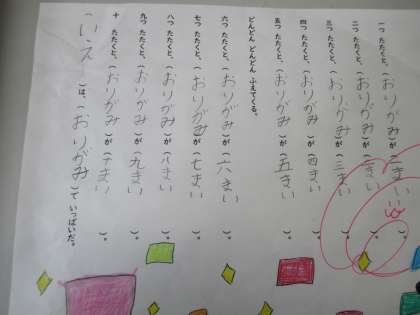 一つ たたくと、(おりがみ)が(一まい)。
二つ たたくと、(おりがみ)が(二まい)。
三つ たたくと、(おりがみ)が(三まい)。
四つ たたくと、(おりがみ)が(四まい)。
五つ たたくと、(おりがみ)が(五まい)。
どんどん どんどん ふえてくる。
六つ たたくと、(おりがみ)が(六まい)。
七つ たたくと、(おりがみ)が(七まい)。
八つ たたくと、(おりがみ)が(八まい)。
九つ たたくと、(おりがみ)が(九まい)。
十 たたくと、(おりがみ)が(十まい)。
(いえ)は、(おりがみ)で いっぱいだ。